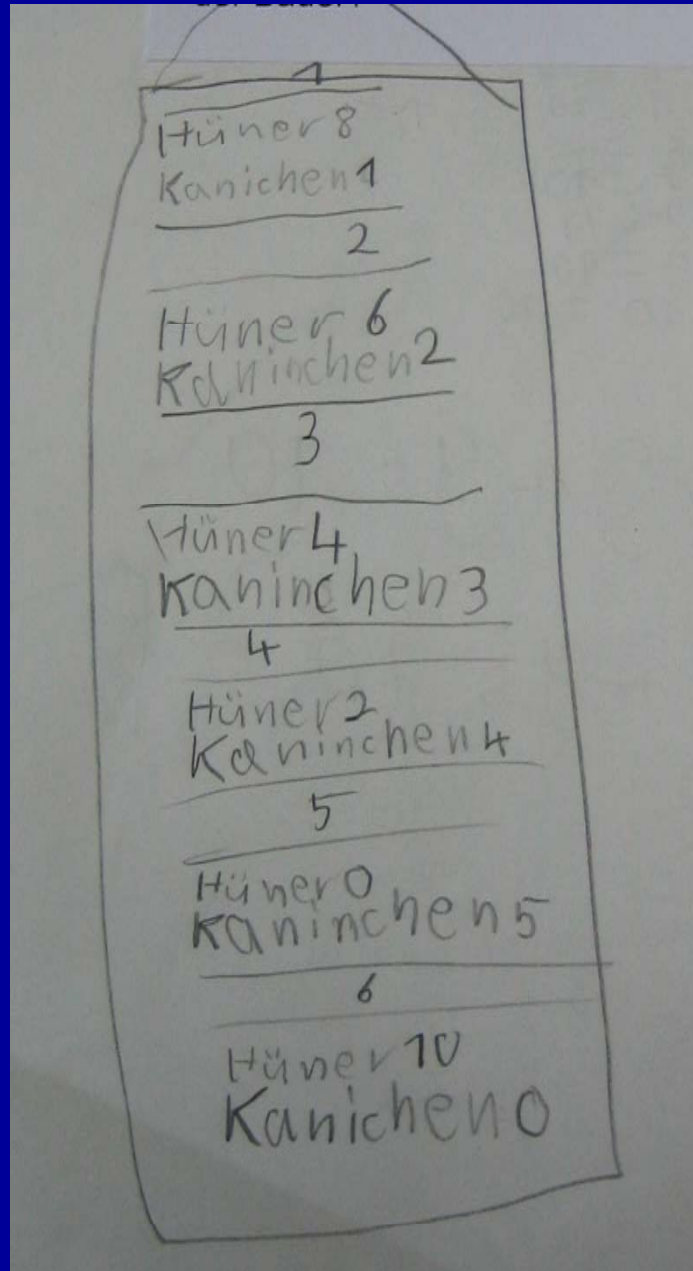 1
Hüner 8
Kanichen 1
2
Hüner 6
Kaninchen 2
3
Hüner 4
Kaninchen 3
4
Hüner 2
Kaninchen 4
5
Hüner 0
Kaninchen 5
6
Hüner 10
Kanichen 0